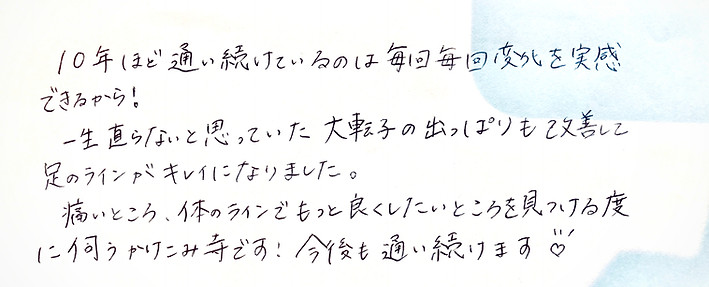 10年ほど通い続けているのは毎回毎回変化を実感
できるから!
一生直らないと思っていた大転子の出っぱりも改善して
足のラインがキレイになりました。
痛いところ、体のラインでもっと良くしたいところを見つける度
に伺うかけこみ寺です!今後も通い続けます♡